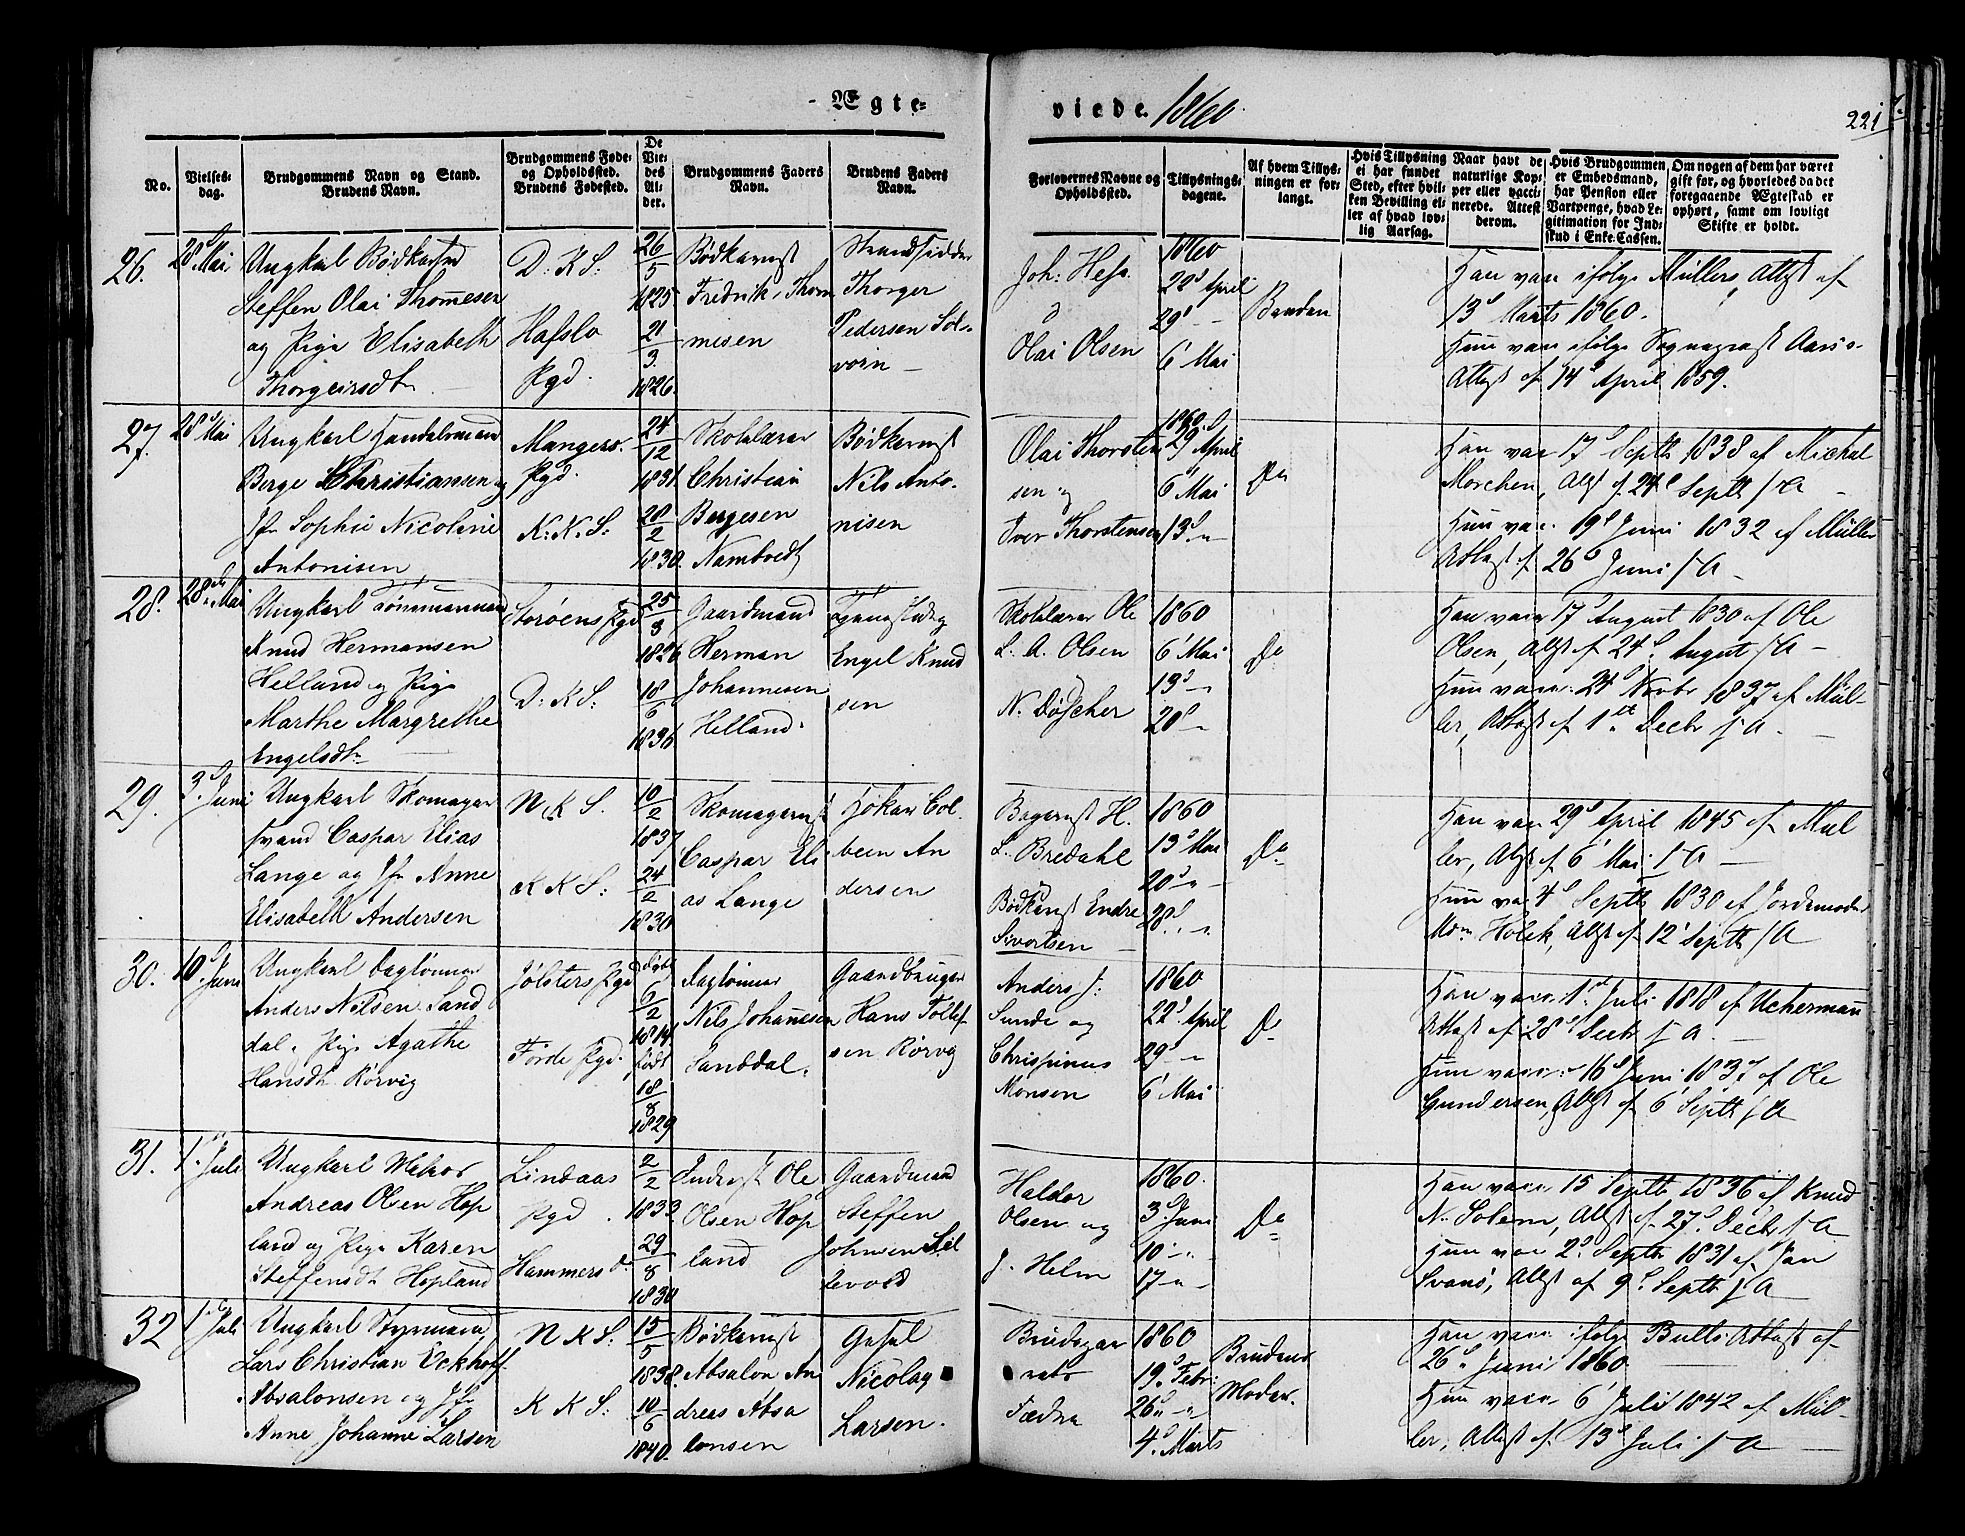 Ægte-
viede. 1860.
221
No.
Vielses-
dag.
Brudgommens Navn og Stand.
Brudens Navn.
Brudgommens Føde-
og Opholdssted.
Brudens Fødested.
De
Vie-
des
Al-
der.
Brudgommens Faders
Navn.
Brudens Faders
Navn.
Forlovernes Navne og
Opholdssted.
Tillysnings-
dagene.
Af hvem Tillys-
ningen er for-
langt.
Hvis Tillysning
ei har fundet
Sted, efter hvil-
ken Bevilling el-
ler af hvad lov-
lig Aarsag.
Naar havt de
naturlige Kop-
per eller vacci-
nerede. Attest
derom.
Hvis Brudgommen
er Embedsmand,
har Pension eller
Vartpenge, hvad Le-
gitimation for Ind-
skud i Enke-Cassen.
Om nogen af dem har været
gift før, og hvorledes da det
foregaaende Ægteskab er
ophørt, samt om lovligt
Skifte er holdt.
26.
20 Mai
Ungkarl Bødkersvd
Steffen Olai Thomesen
og Pige Elisabeth
Thorgeirsdt
D: K S:
Hafslo
Pgd.
26/5
1825
21/3
1826.
Bødkermst
Fredrik Thom
mesen
Strandsidder
Thorger
Pedersen Sol-
vorn
Joh: Hess
Olai Olsen
1860
22d April
29d -
6' Mai
Bruden
Han vacc ifølge Müllers Attest af
13d Marts 1860.
Hun vacc ifølge Sogneprest
Attest af 14d April 1859.
27.
28d Mai
Ungkarl Handelsmand
Berge Christiansen og
Jfr Sophie Nicoline
Antonisen
Mangers
Pgd.
N: K: S:
24/12
1831
28/2
1830.
Skolelærer
Christian
Bergesen
Namtvedt
Bødkermst
Nils Anto-
nisen
Olai Thorsten
sen og
Iver Thorstensen
1860.
29d April
6' Mai
13d -
Do
Han vacc 17d Septb 1838 af Michal
Morchen, Attst f. 24d Septb s A
Hun vacc 19d Juni 1832 af Müller
Attest f. 26d Juni s A
28.
28de Mai
Ungkarl Tømmermand
Knud Hermansen
Helland og Pige
Marthe Margrethe
Engelsdt
Storøens Pgd
D: K S:
25/3
1826
18/6
1836
Gaardmand
Herman
Johannesen
Helland.
Engel Knud
sen
Skolelærer Ole
L. A. Olsen
N. Døscher
1860
6' Mai
13d -
20d -
Do
Han vacc 17d August 1830 af Ole
Olsen, Attst f. 24d August s A
Hun vacc 24 Novbr 1837 af Mül-
ler, Attest f 1ste Decbr s A.
29.
3d Juni
Ungkarl Skomager
svend Caspar Elias
Lange og Jfr Anne
Elisabeth Andersen
N K S.
K K S:
10/2
1837
24/2
1830
Skomagermst
Caspar Eli
as Lange
Høker Col
been An
dersen
Bagermst H.
L. Bredahl
Bødkermst Endre
Sivertsen
1860
13d Mai
20d -
28d -
Do
Han vacc 29d April 1845 af Mül
ler, Attst f 6' Mai s A
Hun vac 4d Septb 1830 af Jordemoder
Mdm Holck, Attst f 12' Septb s A
30.
10d Juni
Ungkarl Daglønner
Anders Nilsen Sand
dal og Pige Agathe
Hansdt Rørvig
Jølsters Pgd
Førde Pgd.
døbt
6/2
1814
født
18/8
1829
Daglønner
Nils Johannesen
Sanddal.
Gaardbruger
Hans Tollef
sen Rørvig
Anders J:
Sunde og
Chrispinus
Monsen
1860
22d April
29d -
6' Mai
Do
Han vacc 1st Juli 1818 af Ucherman
Attest f 28d Decbr s A.
Hun vacc 16d Juni 1837 af Ole
Gundersen, Attst f 6' Septb s A
31.
1. Juli
Ungkarl
Andreas Olsen Hop
land og Pige Karen
Steffensdt Hopland
Lindaas
Pgd
Hammers do
2/2
1833
29/8
1830
Inderst Ole
Olsen Hop
land
Gaardmand
Steffen
Johnsen
Haldor
Olsen og
J. Helm
1860.
3d Juni
10 -
17 -
Do
Han vacc 15 Septb 1836 af Knud
N. Solem, Attst f. 27d Decbr s A
Hun vacc 2d Septb 1831 af Jan
Svanø, Attst af 9d Septb s A
32
1ste Juli
Ungkarl Styrmand
Lars Christian Eckhoff
Absalonsen og Jfr
Anne Johanne Larsen
N K S:
K K S:
15/5
1838.
10/6
1840.
Bødkermst
Absalon An
dreas Absa
lonsen
Nicolay
Larsen.
Brudepar
rets
Fædre
1860
19d Febr:
26d -
4. Marts
Brudens
Moder.
Han vacc ifølge Bulls Attest af
26d Juni 1860
Hun vacc 6' Juli 1842 af Mül-
ler, Attest f. 13d Juli s A